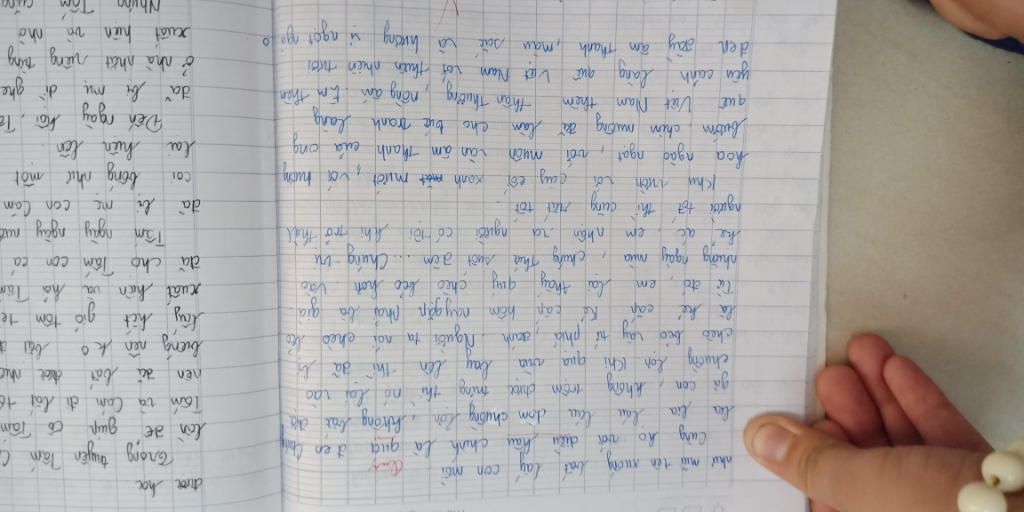 như mũi tên xuống bắt lấy con mồi
Cùng họ với diều hâu chính là quạ đen chúng
lia lia láu láu dòm chuồng lợn, không bắt được
gà con, không trộm được trứng thì nó lại vào
chuồng lợn. Khi quạ vừa bay lên thì đã bị
chèo bẻo vây tứ phía, đánh. Người ta nói chèo bẻo
là kẻ cắp. Kẻ cắp hôm nay gặp phải bà già
Từ đó, em lại thấy quý chèo bẻo hơn. Vào
những ngày mùa, chúng thức suốt đêm... Chúng trị
kẻ ác, em nhận ra người có tội khi trở thành
người tốt thì cũng rất tốt
Khu vườn với cây cối xanh mướt, với hương
hoa ngào ngạt, với muôn vàn âm thanh của ong
bướm, chim muông đã làm cho bức tranh làng
quê Việt Nam thêm thân thương, nồng ấm. Em thêm
yêu cảnh làng quê Việt Nam với thiên nhiên tươi
đẹp đầy âm thanh, màu sắc và hương vị ngọt ngào
được
Trong truyện Tấm C
lên để giúp cô Tấm
Tấm và Cám đi bắt tô
nên đã bắt được
biếng nên k
lấy hết giỏ tôm
xuất hiện và
đã cho Tấm con cá
Tấm ngày ngày
đã bị mẹ con Cám
coi bống như một
lại hiện lên
Đến ngày hội, Tấ
đã bị mụ dì ghẻ
ở nhà nhặt riêng từng
xuất hiện và nhờ
Nhưng Tấm cũng